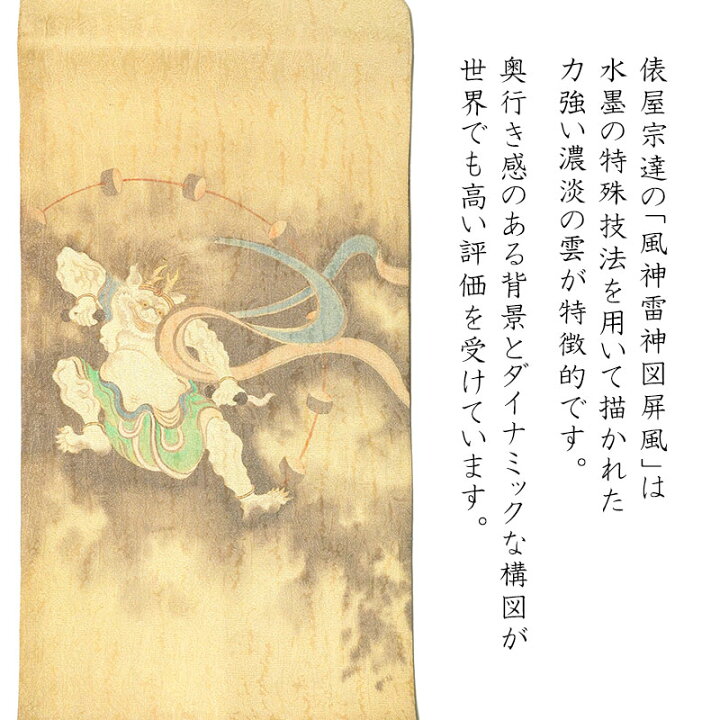 俵屋宗達の「風神雷神図屏風」は
水墨の特殊技法を用いて描かれた
力強い濃淡の雲が特徴的です。
奥行き感のある背景とダイナミックな構図が
世界でも高い評価を受けています。